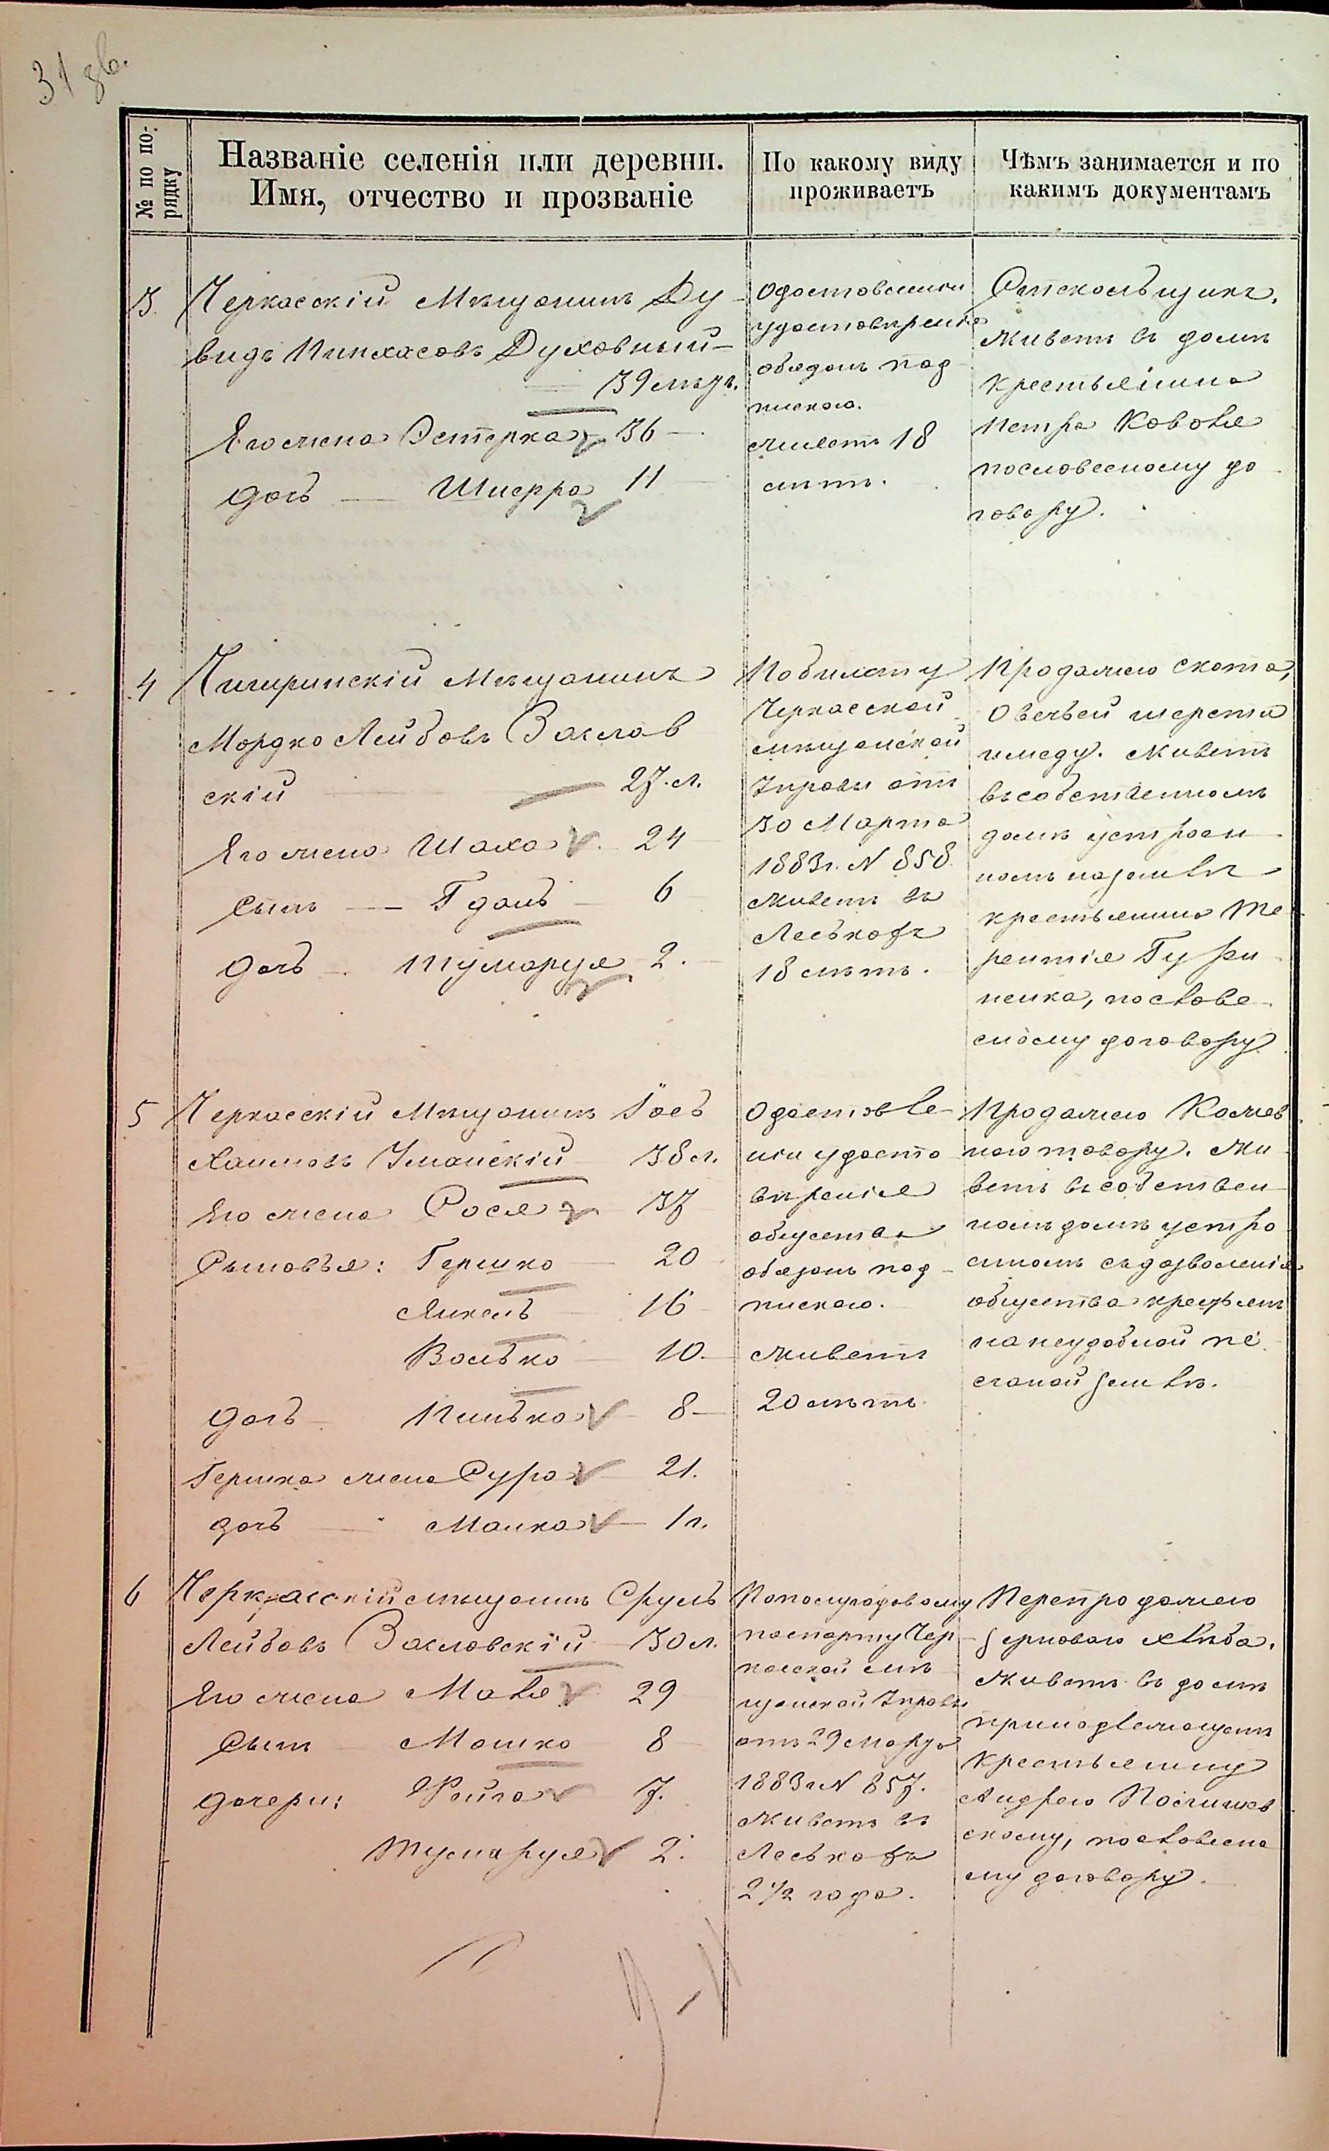 31 зв.
№ по по-
рядку
Названіе селенія или деревни.
Имя, отчество и прозваніе
По какому виду
проживаетъ
Чѣмъ занимается и по
какимъ документамъ
3. Черкасскій Мѣщанинъ Ду
видъ Пинхасовъ Духовный
39 лѣтъ.
Его жена Эстерка 36
дочь Шифра 11
О доставленіи
удостовѣренія
обязанъ под
пискою.
живетъ 18
лѣтъ.
Стекольщикъ.
живетъ въ домѣ
Крестьянина
Петра Коваля
пословесному до
говору.
4 Чигиринскій Мѣщанинъ
Мордко Лейбовъ Заслав
скій 27. л.
Его жена Шаха 24
сынъ Гдаль 6
дочь Тумаруя 2.
По билету
Черкасской
мѣщанской
Управы отъ
30 Марта
1883 г. N 858
живетъ въ
Леськахъ
18 лѣтъ.
Продажею скота,
Овечьей шерсти
имеду. живетъ
въсобственномъ
домѣ устроен
номъ на землѣ
крестьянина Те
рентія Гури
ненка, пословес
ному договору
5 Черкасскій Мѣщанинъ Іось
Хаимовъ Уманскій 38 л.
Его жена Рося 37
Сыновья: Гершко 20
Янкель 16
Волько 10.
дочь Пинька 8
Гершка жена Сура 21.
дочь Малка 1 г.
О доставле
ніи удосто
вѣренія
общества
обязанъ под
пискою.
живетъ
20 лѣтъ.
Продажею Кожев
ного товару. жи
ветъ въ собствен
номъ домѣ устро
енномъ съ дозволенія
общества крестьянъ
на неудобной пе
счаной землѣ.
6 Черкасскій мѣщанинъ Сруль
Лейбовъ Заславскій 30 л.
Его жена Маля 29
Сынъ Мошко 8
дочери: Фейга 7.
Тумаруя 2.
По полугодовому
паспорту Чер
касской мѣ
щанской Управы
отъ 29 Марта
1883 г. N 857.
живетъ въ
Леськахъ
2 1/2 года.
Перепродажею
зернового хлѣба.
живетъ въ домѣ
принадлежащемъ
Крестьянину
Андрею
скому, пословесно
му договору.